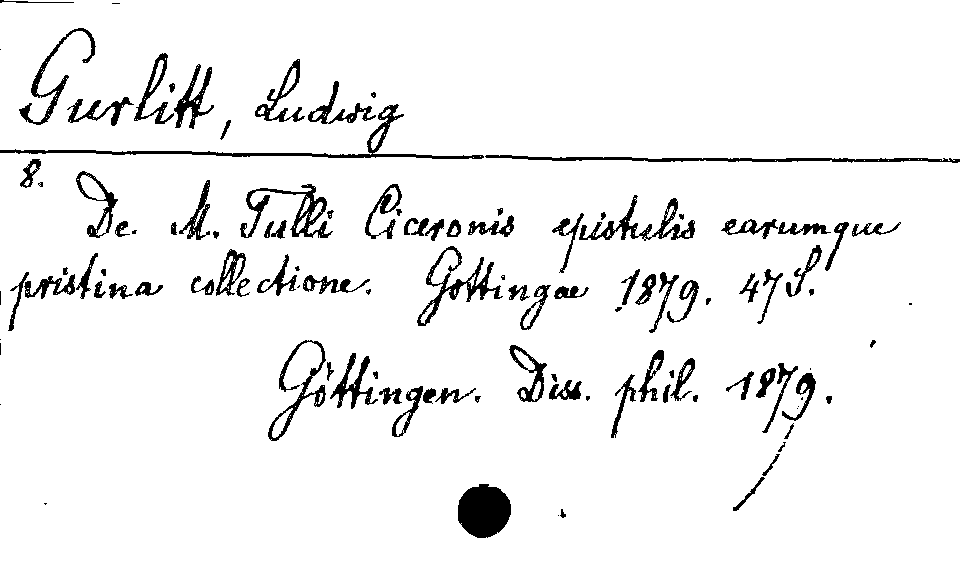 Gurlitt, Ludwig
8.
De M. Tulli Ciceronis epistulis earumque
pristina collectione. Gottingae 1879. 47 S.
Göttingen. Diss. phil. 1879.